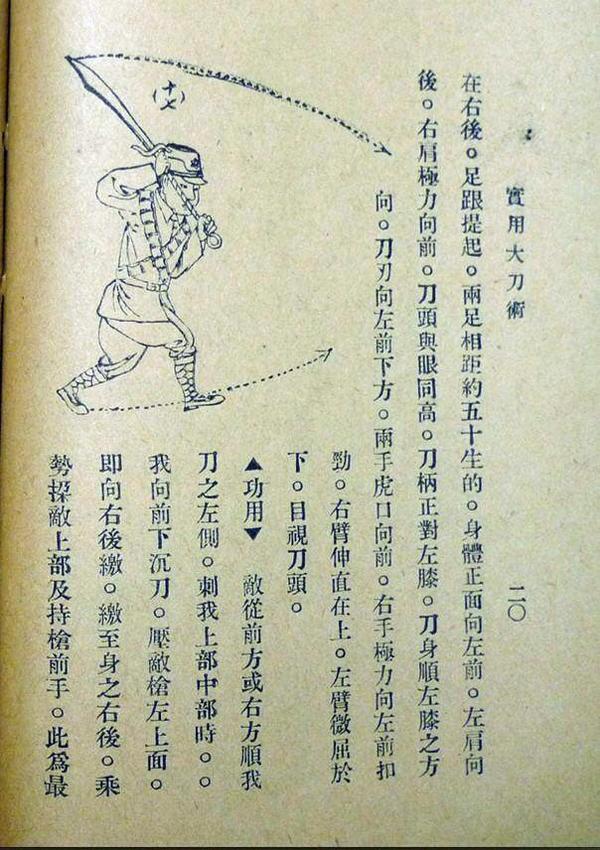 實用大刀術
二〇
在右後。足跟提起。兩足相距約五十生的。身體正面向左前。左肩向
後。右肩極力向前。刀頭與眼同高。刀柄正對左膝。刀身順左膝之方
向。刀刃向左前下方。兩手虎口向前。右手極力向左前扣
勁。右臂伸直在上。左臂微屈於
下。目視刀頭。
▲功用▼ 敵從前方或右方順我
刀之左側。刺我上部中部時。。
我向前下沉刀。壓敵槍左上面。
即向右後繳。繳至身之右後。乘
勢探敵上部及持槍前手。此爲最
(十七)